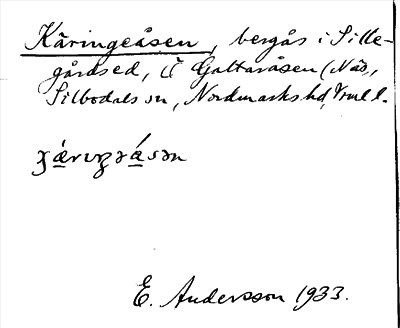 Käringeåsen, bergås i Sille-
gårdsed, Ö Galtaråsen (Näs,
Silbodals sn, Nordmarks hd, Vrml l.
E. Andersson 1933.